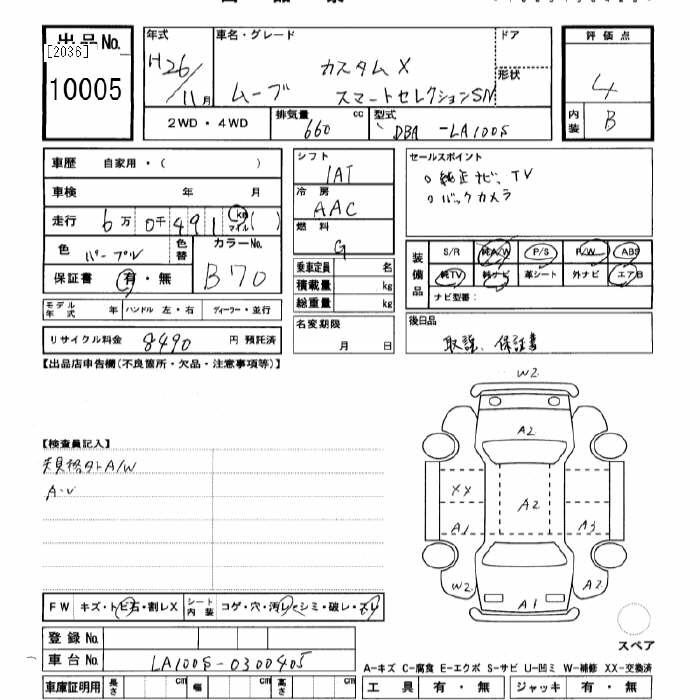 出品No.
[2036]
10005
年式
H26/11月
車名・グレード
ムーブ
カスタムX
スマートセレクションSN
ドア
形状
評価点
4
内装 B
2WD・4WD
排気量 660 cc
型式 DBA-LA100S
車歴 自家用・( )
車検 年 月
走行 6万0千491 km マイル ( )
色 パープル
色替
カラーNo. B70
保証書 有・無
モデル年式 年 ハンドル 左・右 ディーラー・並行
リサイクル料金 8490 円 預託済
シフト
IAT
冷房
AAC
燃料
G
乗車定員 名
積載量 kg
総重量 kg
名変期限
月 日
セールスポイント
○純正ナビ、TV
○バックカメラ
装備品
S/R 純A/W P/S P/W ABS
純TV 純ナビ 革シート 外ナビ エアB
ナビ型番:
後日品
取説、保証書
【出品店申告欄(不良箇所・欠品・注意事項等)】
【検査員記入】
A・U
FW キズ・トビ石・割レX シート内装 コゲ・穴・汚レ・シミ・破レ・スレ
登録No.
車台No. LA100S-0300405
車庫証明用 長さ cm 幅 cm 高さ cm
W2
A2
XX
A2
A1
A3
W2
A2
A1
スペア
A-キズ C-腐食 E-エクボ S-サビ U-凹ミ W-補修 XX-交換済
工具 有・無 ジャッキ 有・無